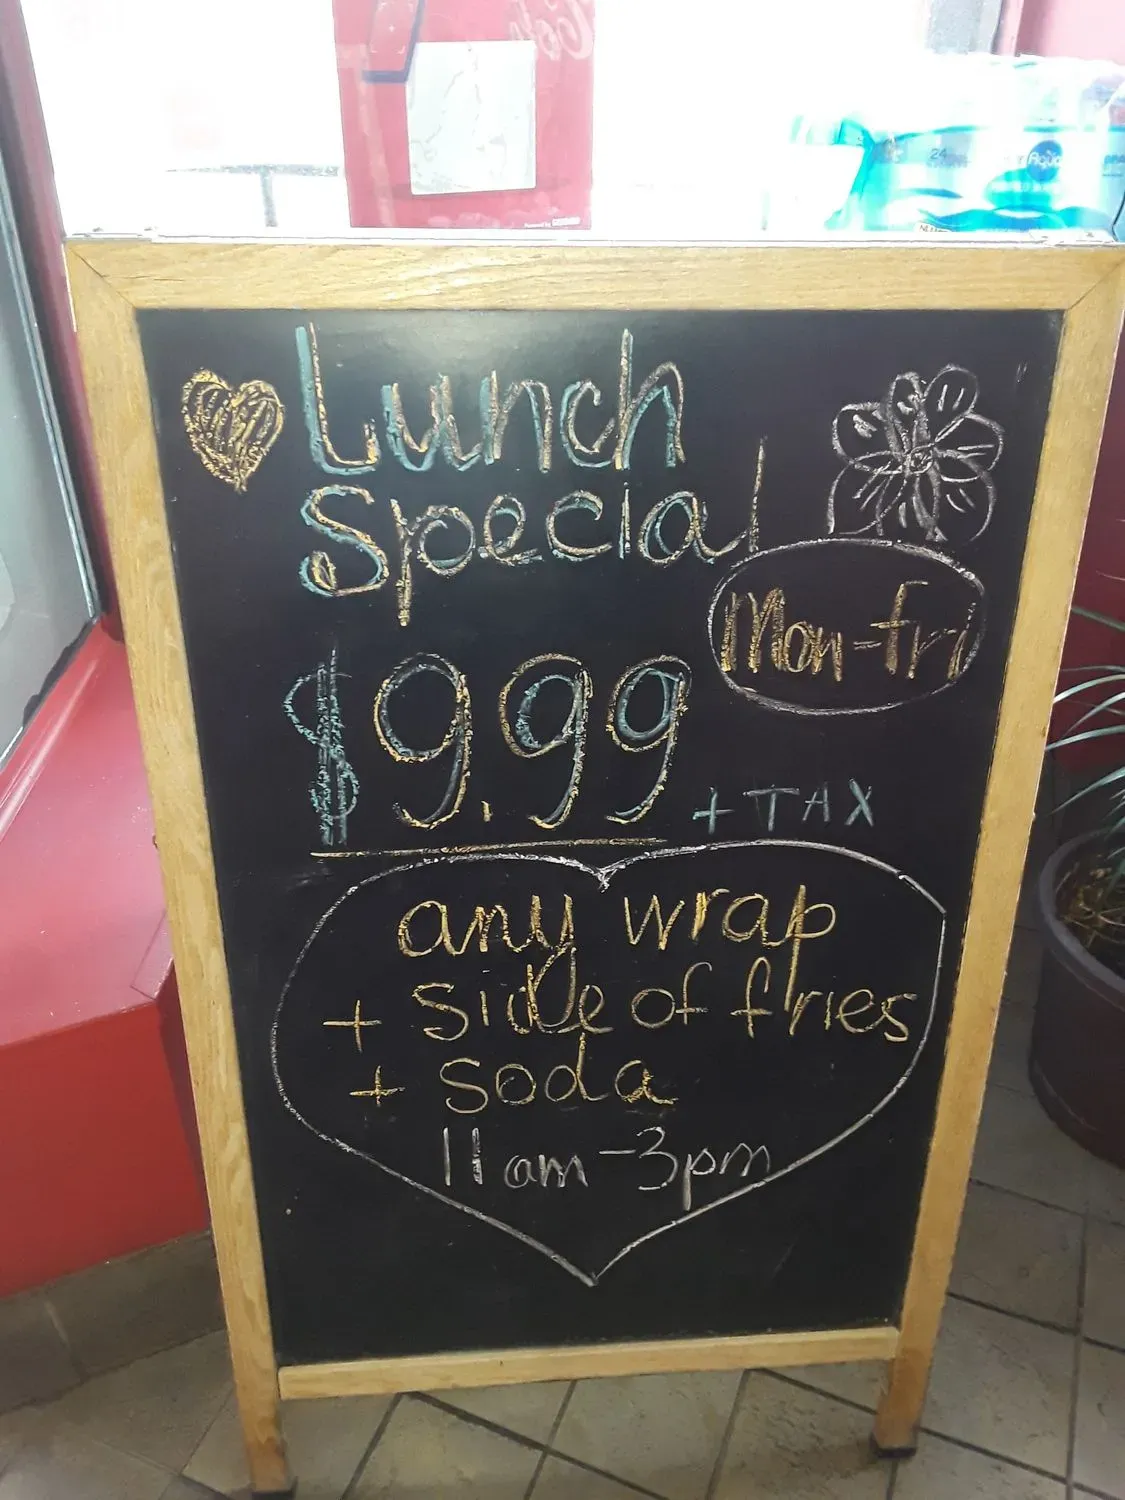 24
Aqua
Lunch
Special
Mon-fri
$9.99 + TAX
any wrap
+ side of fries
+ soda
11am-3pm